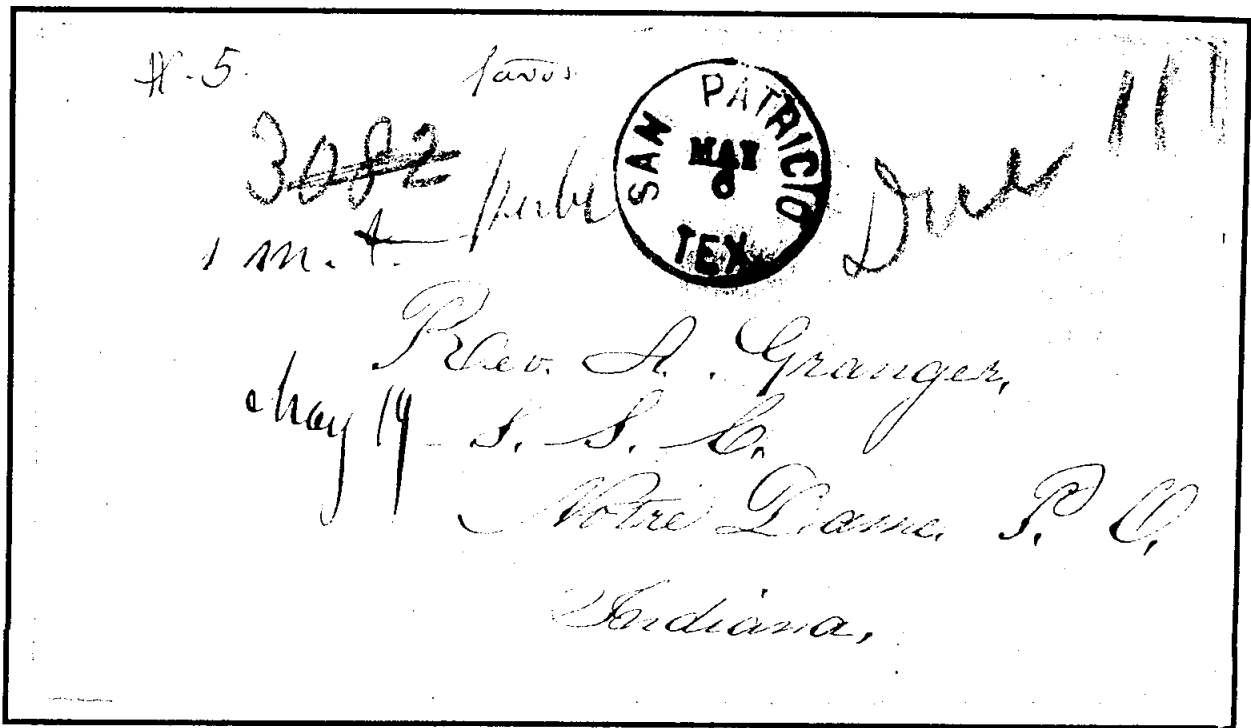 5. favors
3082
1 m. t. publ
SAN PATRICIO
MAY
6
TEX.
Due
Rev. A. Granger,
May 19
S. S. C.
Notre Dame P. O.
Indiana,